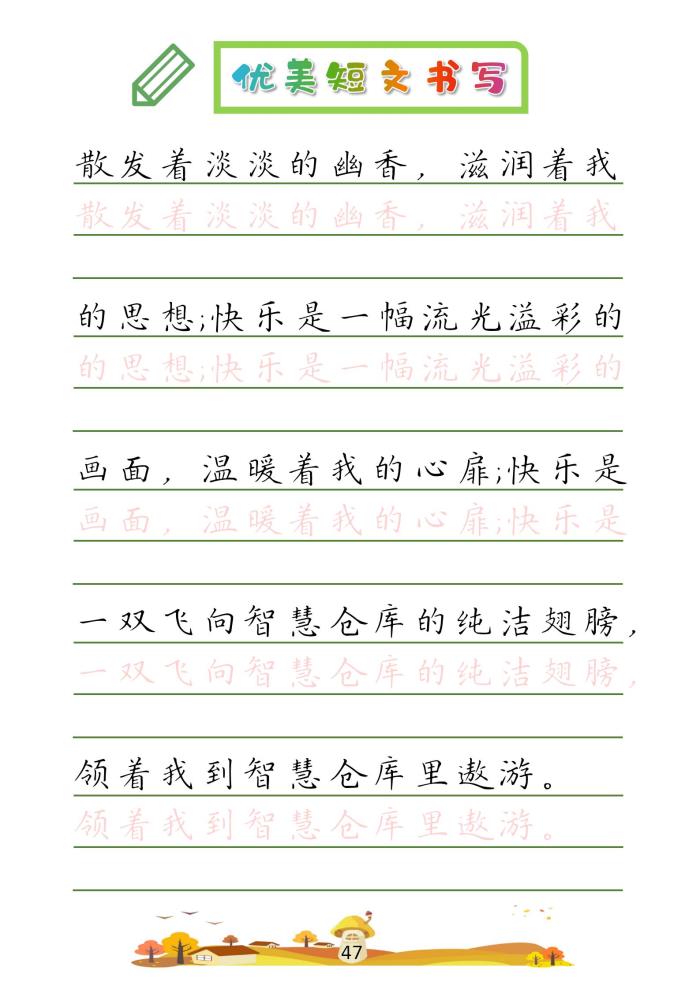 优美短文书写
散发着淡淡的幽香，滋润着我
散发着淡淡的幽香，滋润着我
的思想;快乐是一幅流光溢彩的
的思想;快乐是一幅流光溢彩的
画面，温暖着我的心扉;快乐是
画面，温暖着我的心扉;快乐是
一双飞向智慧仓库的纯洁翅膀，
一双飞向智慧仓库的纯洁翅膀，
领着我到智慧仓库里遨游。
领着我到智慧仓库里遨游。
47